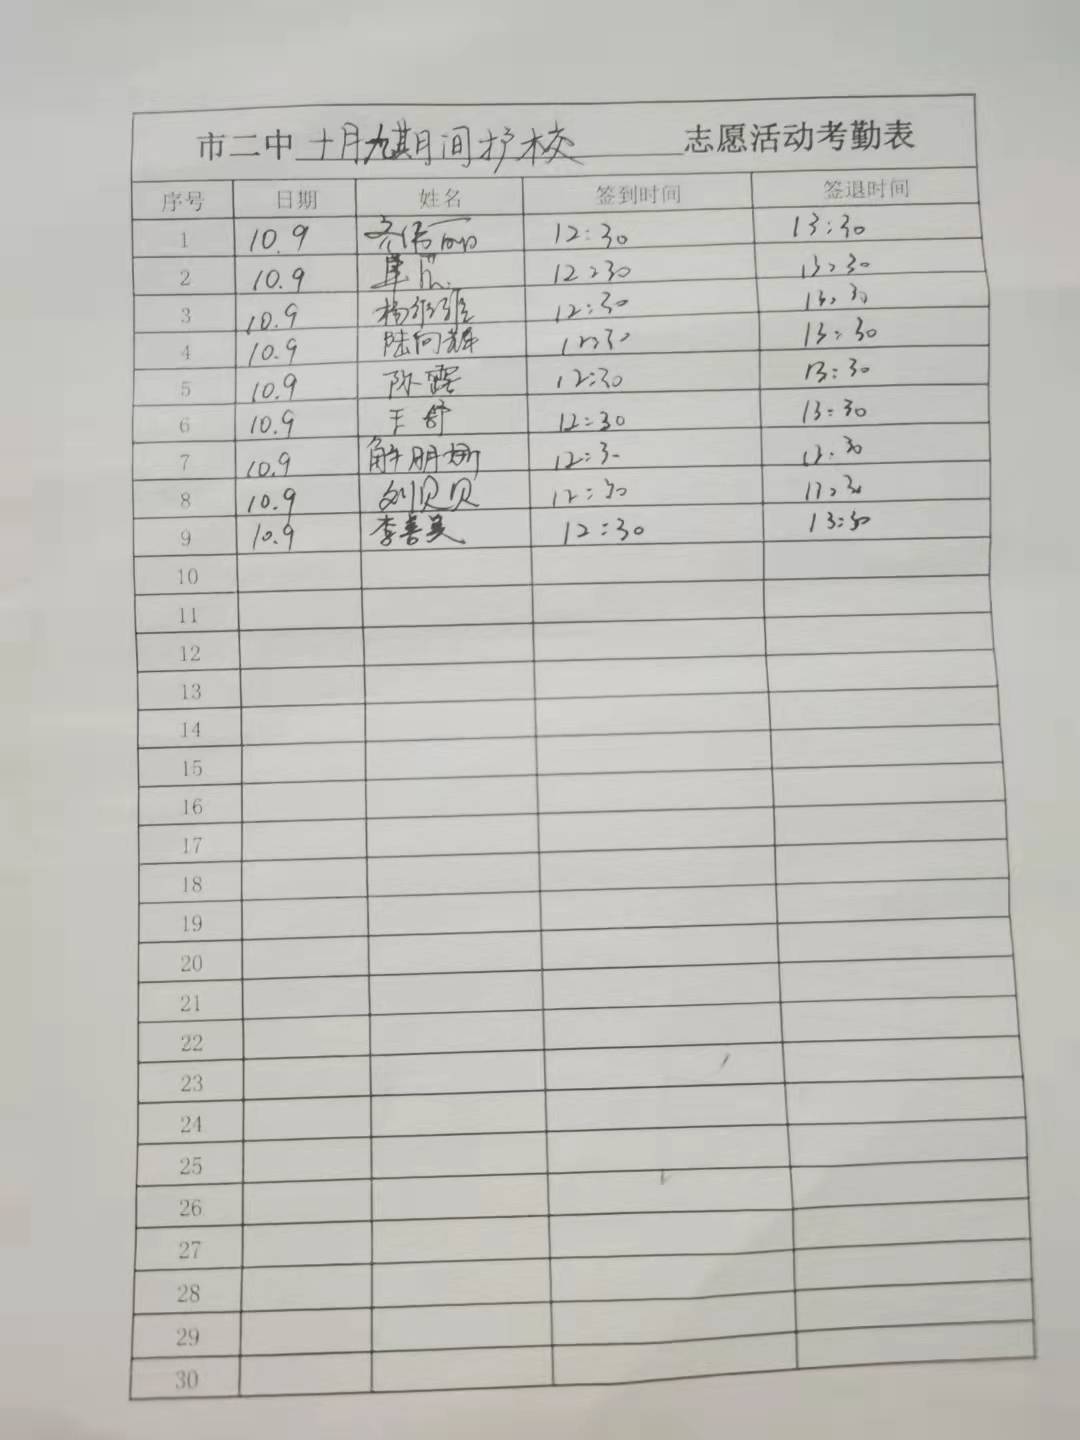 市二中十月九期间护校志愿活动考勤表
序号 日期 姓名 签到时间 签退时间
1 10.9 12:30 13:30
2 10.9 12:30 13:30
3 10.9 杨维维 12:30 13:30
4 10.9 陆向辉 12:30 13:30
5 10.9 陈露 12:30 13:30
6 10.9 王舒 12:30 13:30
7 10.9 解朋娜 12:30 13:30
8 10.9 刘贝贝 12:30 13:30
9 10.9 李善美 12:30 13:30
10
11
12
13
14
15
16
17
18
19
20
21
22
23
24
25
26
27
28
29
30